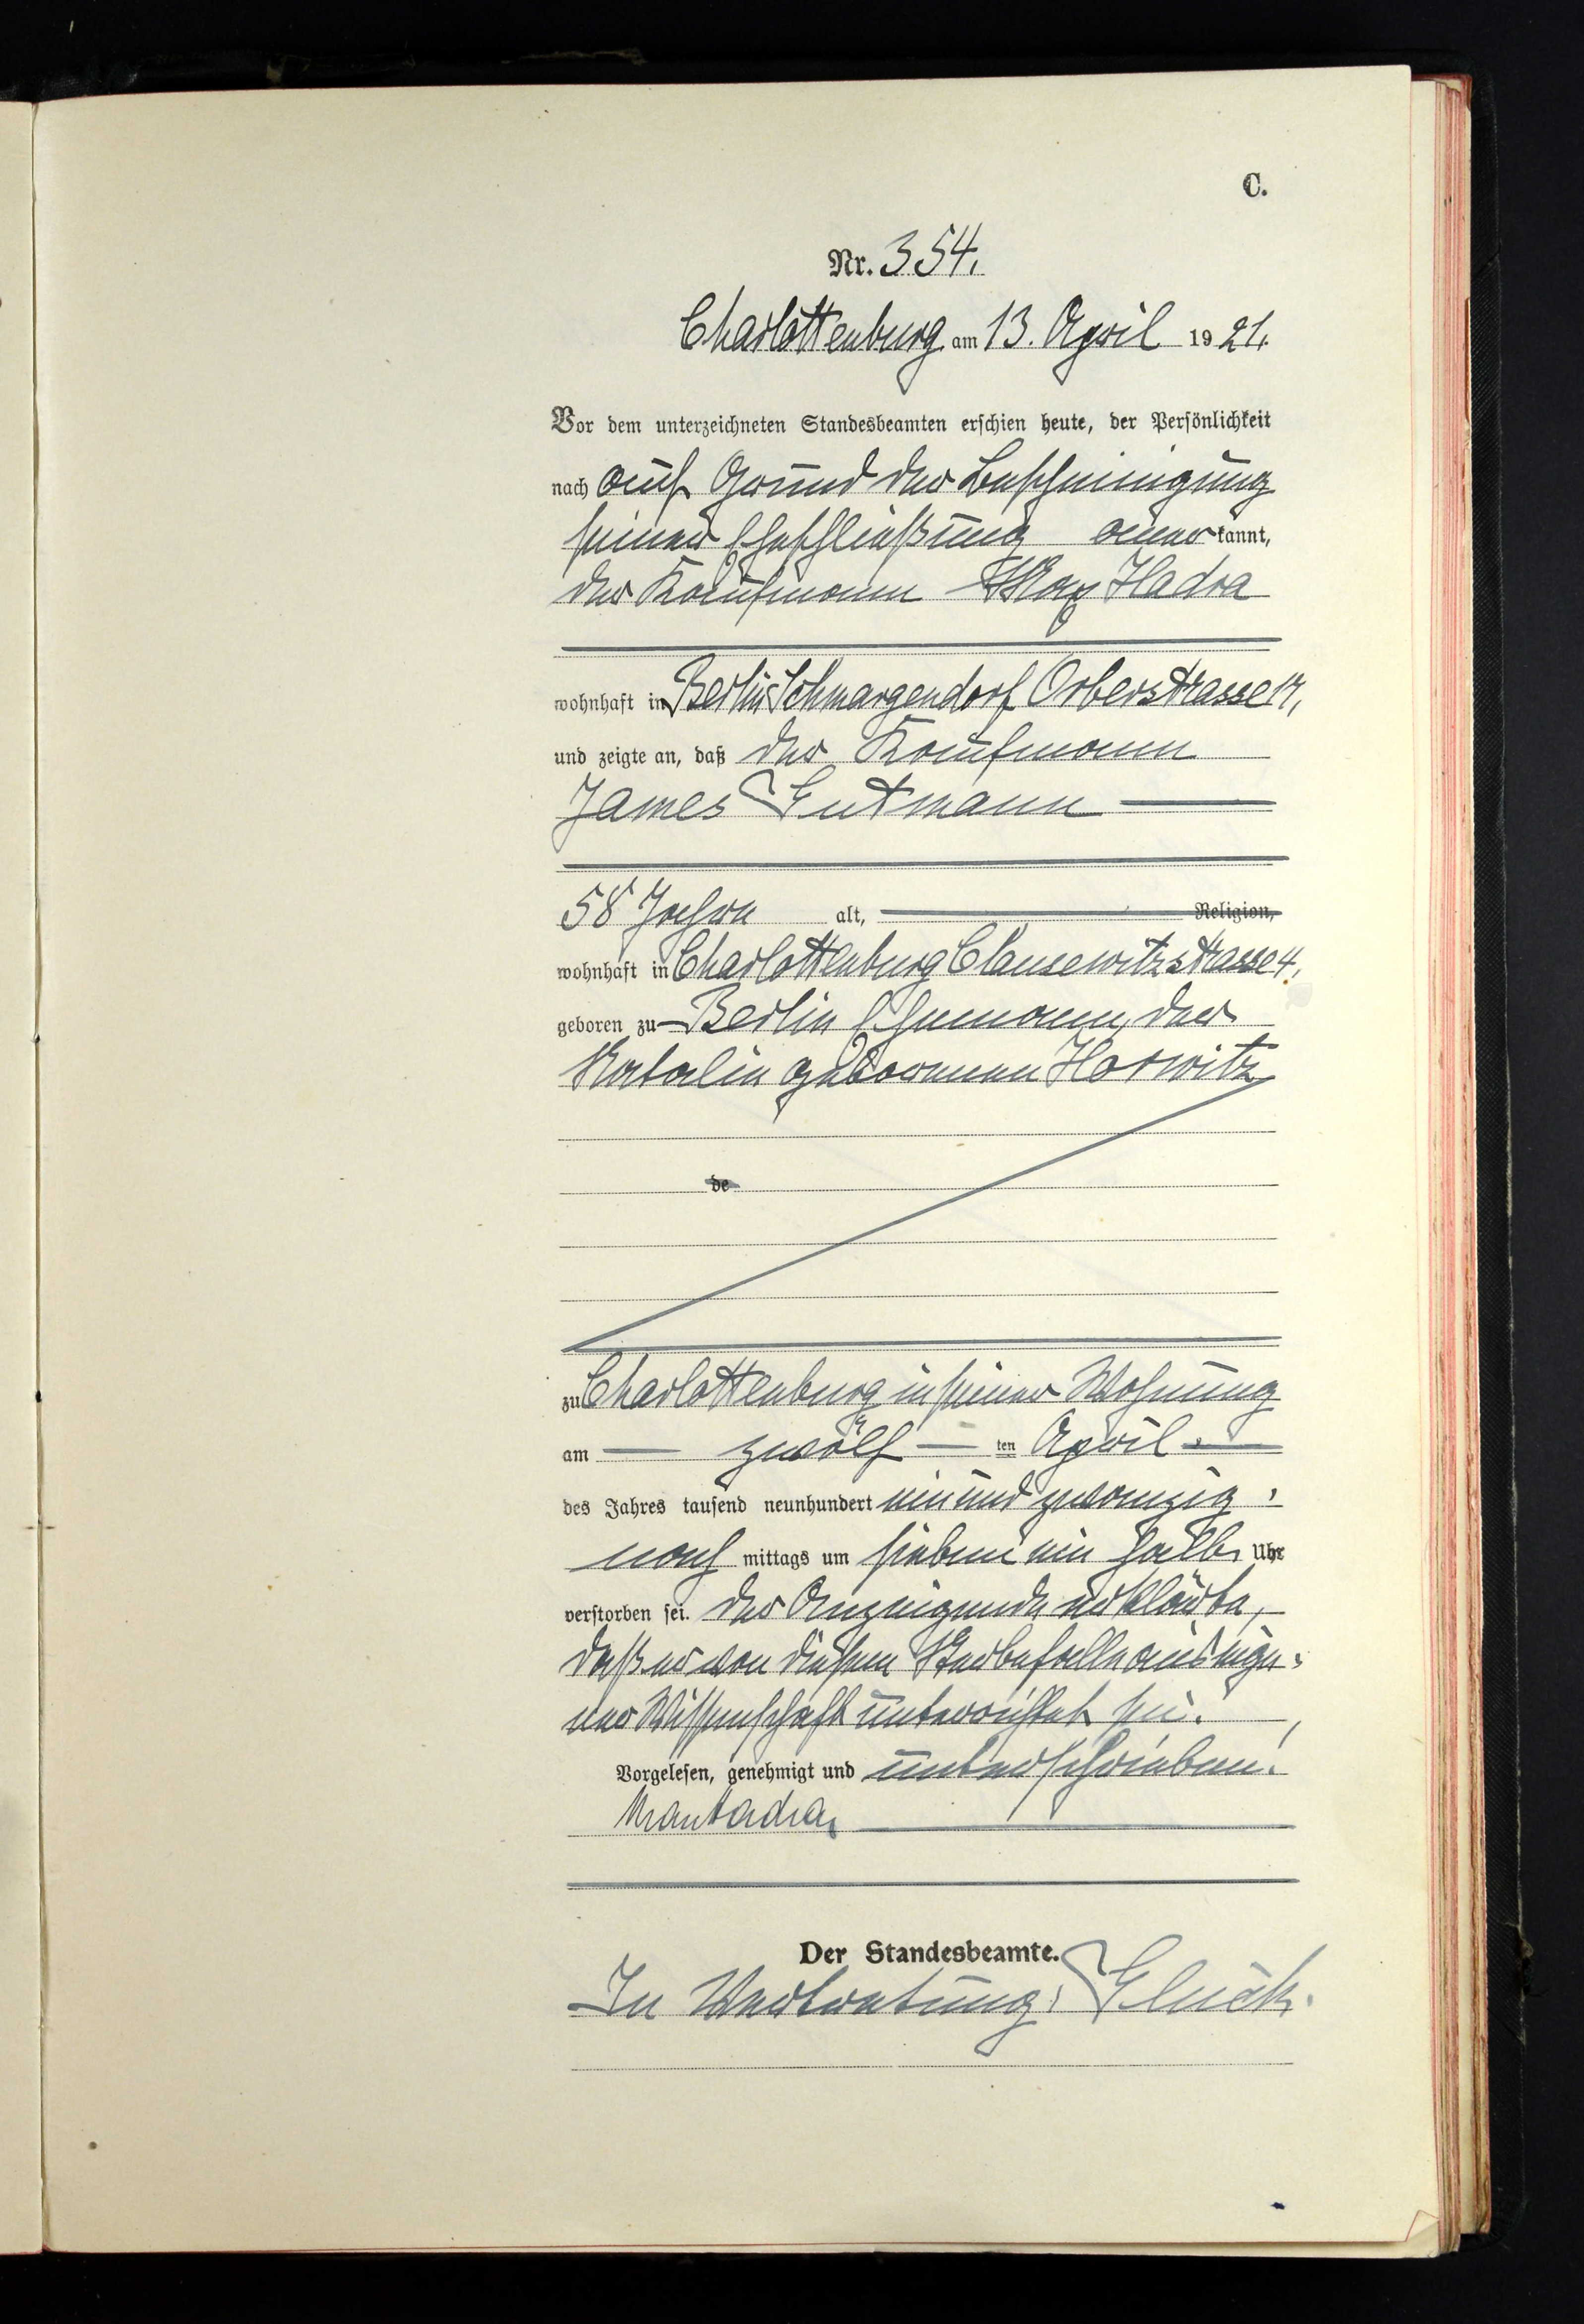 C.
Nr. 354.
Charlottenburg am 13. April 1921.
Vor dem unterzeichneten Standesbeamten erschien heute, der Persönlichkeit
nach auf Grund der Bescheinigung
seiner Eheschließung aner kannt,
der Kaufmann Max Hadra
wohnhaft in Berlin Schmargendorf Orberstrasse 17,
und zeigte an, daß der Kaufmann
James Gutmann
58 Jahre alt, Religion,
wohnhaft in Charlottenburg Clausewitzstrasse 4,
geboren zu Berlin Ehemann der
Natalie geborenen Horwitz
de
zu Charlottenburg in seiner Wohnung
am zwölf ten April
des Jahres tausend neunhundert ein und zwanzig
nach mittags um sieben ein halb Uhr
verstorben sei. Der Anzeigende erklärte,
daß er von diesem Sterbefalle aus eige-
ner Wissenschaft unterrichtet sei.
Vorgelesen, genehmigt und unterschrieben.
Max Hadra
Der Standesbeamte.
In Vertretung: Glück.